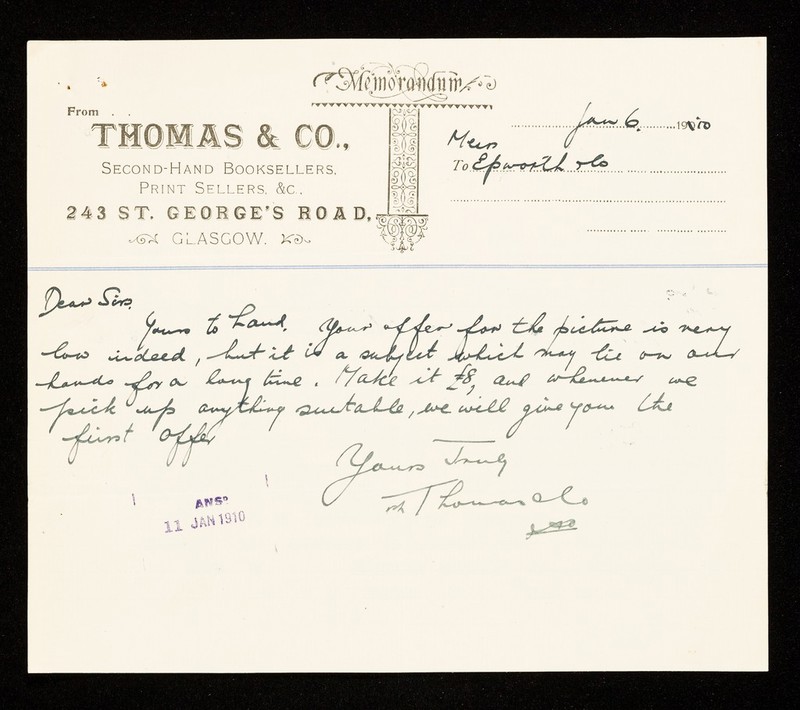 Memorandum.
From
THOMAS & CO.,
SECOND-HAND BOOKSELLERS,
PRINT SELLERS, &C.,
243 ST. GEORGE'S ROAD,
GLASGOW.
Jan 6. 1910
Messrs
To Epworth & Co
Dear Sirs.
Yours to hand. Your offer for the picture is very
low indeed, but it is a subject which may lie on our
hands for a long time. Make it £8, and whenever we
pick up anything suitable, we will give you the
first offer
Yours Truly
Thomas & Co
ANSD
11 JAN 1910